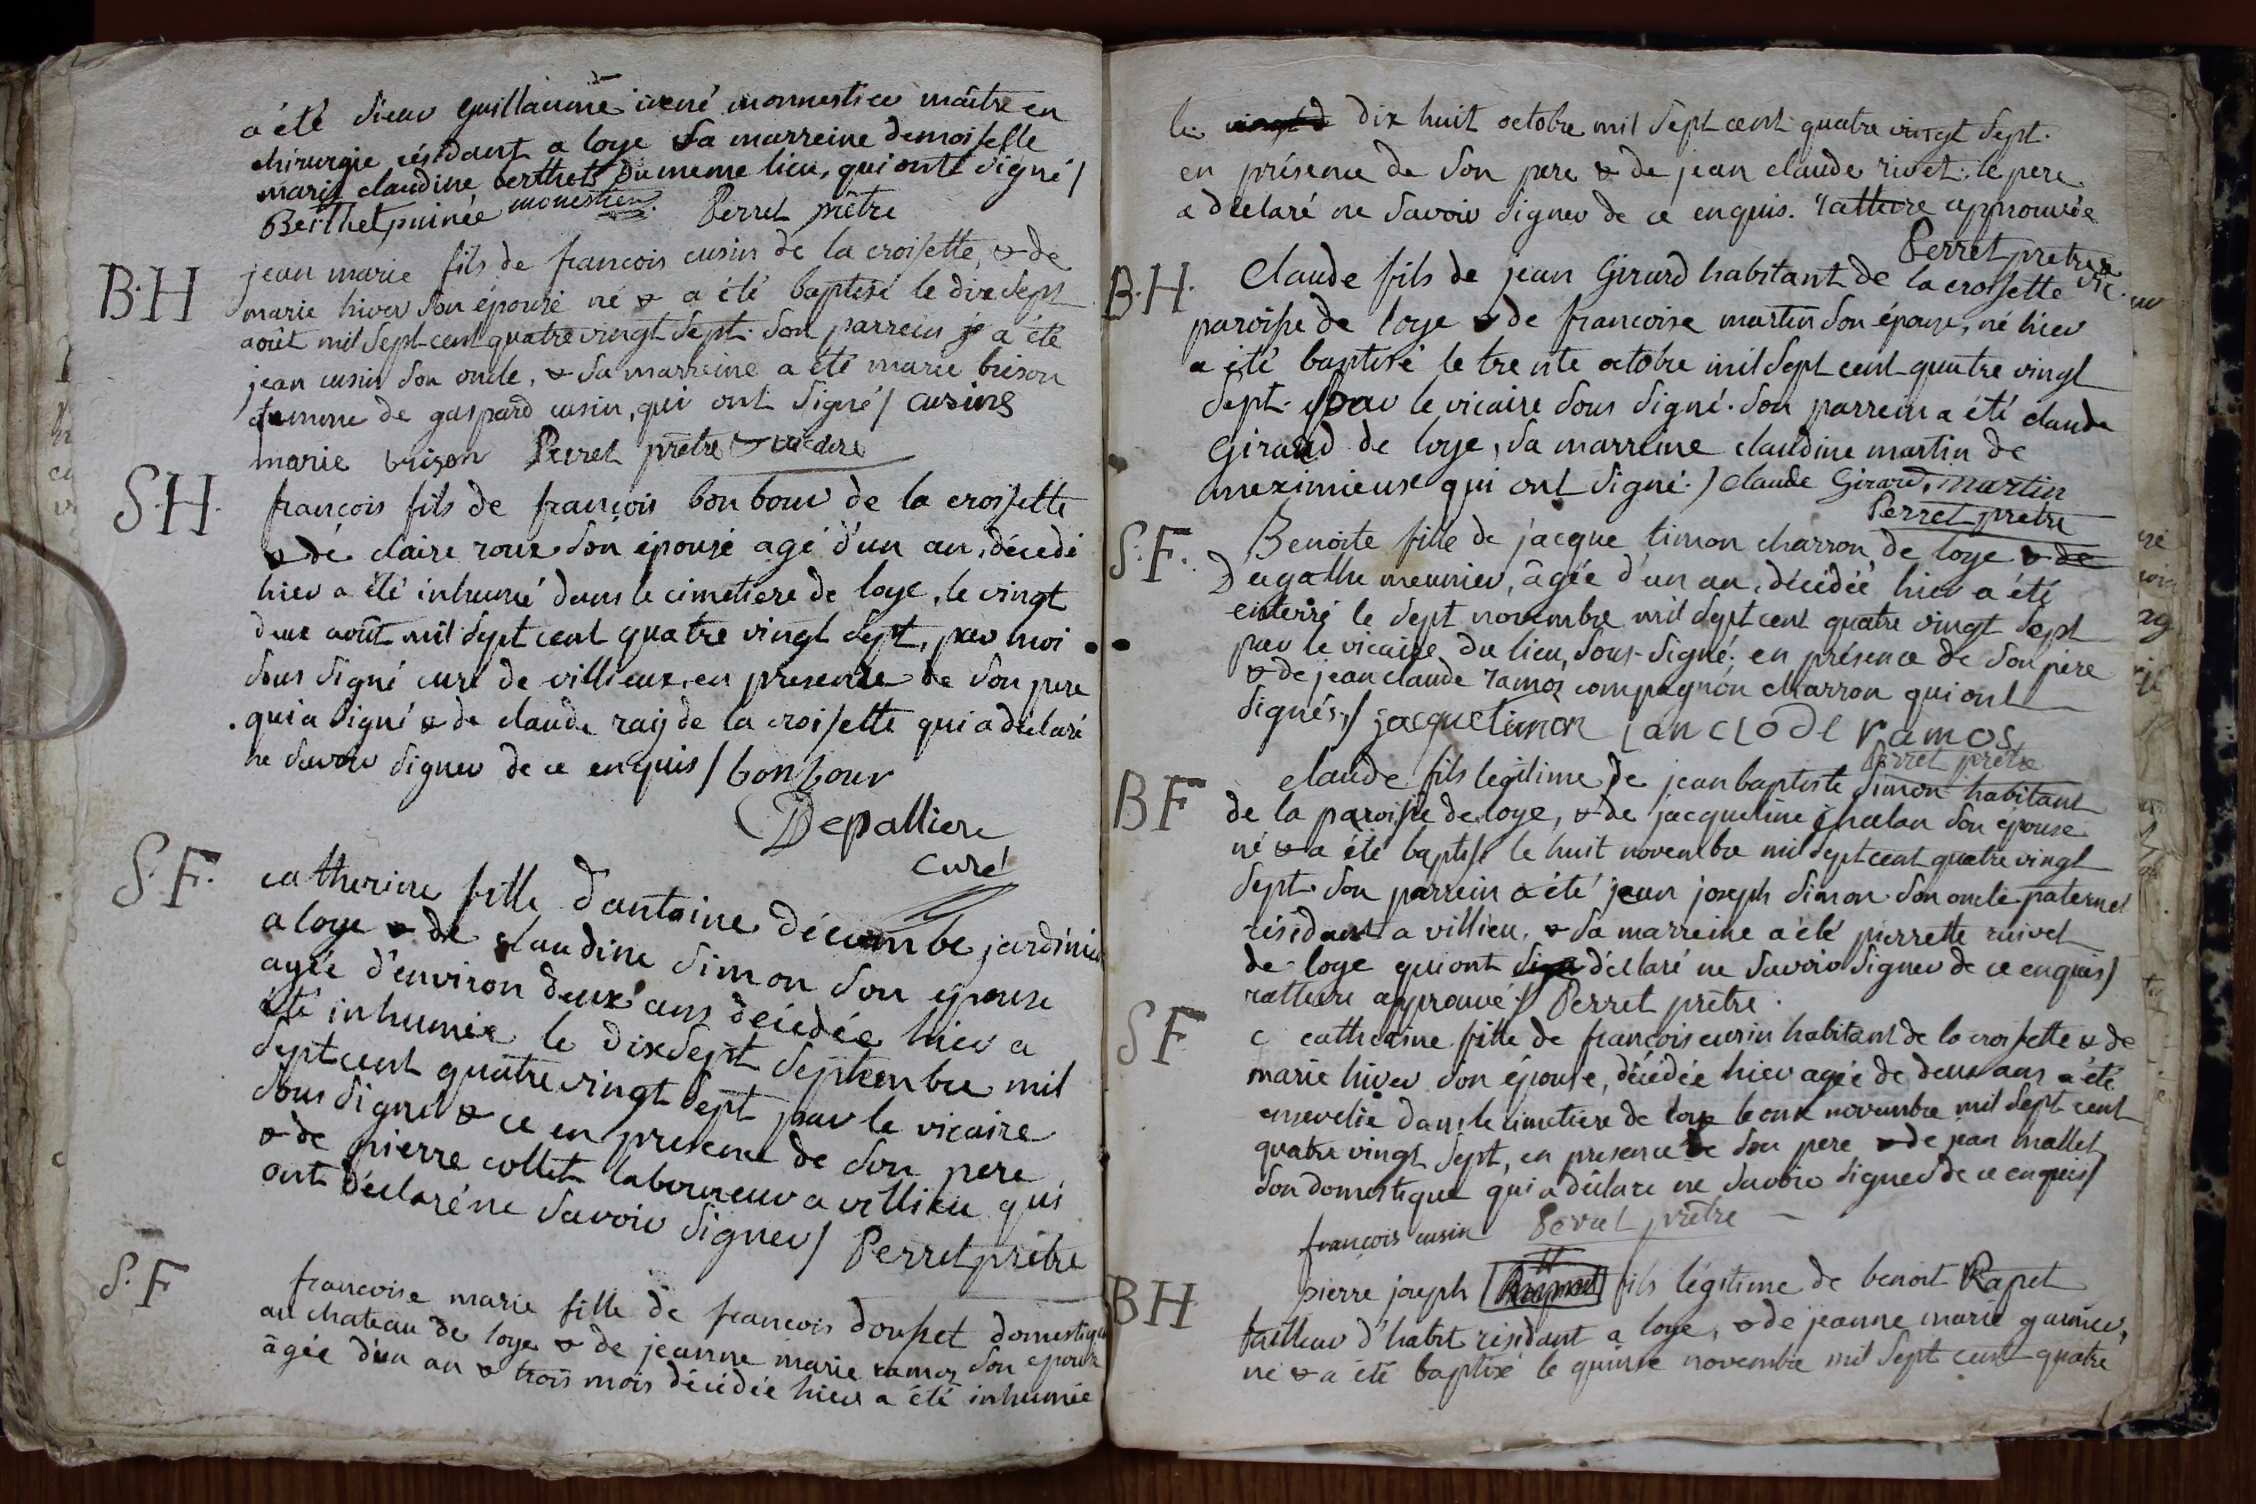 a été sieur guillaume irené monnestier maître en
chirurgie résidant a loye sa marreine demoiselle
marie claudine berthet du meme lieu, qui ont signé /
Berthet puinée monestier Perret prêtre
B.H jean marie fils de francois cusin de la croisette, & de
marie hiver son épouse né & a été baptisé le dix sept
août mil sept cent quatre vingt sept. son parrein a été
jean cusin son oncle, & sa marreine a été marie brison
femme de gaspard cusin, qui ont signé / cusins
marie brizon Perret prêtre & vicaire
S.H. françois fils de françois bonbour de la croisette
& de claire roux son épouse agé d'un an, décedé
hier a été inhumé dans le cimetiere de loye, le vingt
deux août mil sept cent quatre vingt sept, par moi
sous signé curé de villieux, en presence de son pere
qui a signé & de claude raÿ de la croisette qui a déclaré
ne savoir signer de ce enquis / bonbour
Depalliere
curé
S.F. catherine fille d'antoine décumbe jardinier
a loye & de claudine simon son epouse
agée d'environ deux ans décédée hier a
été inhumée le dix sept septembre mil
sept cent quatre vingt sept par le vicaire
sous signé & ce en presence de son pere
& de pierre collet laboureur a villieu qui
ont déclaré ne savoir signer / Perret prêtre
S.F francoise marie fille de francois dousset domestique
au chateau de loye & de jeanne marie ramoz son epouse
âgée d'un an & trois mois décédée hier a été inhumée
le dix huit octobre mil sept cent quatre vingt sept.
en présence de son pere & de jean claude rivet. le pere
a déclaré ne savoir signer de ce enquis. rature approuvée
Perret prêtre &
vic
B.H. Claude fils de jean Girard habitant de la croisette
paroisse de loye & de francoise martin son épouse, né hier
a été baptisé le trente octobre mil sept cent quatre vingt
sept. par le vicaire sous signé. son parrein a été claude
Girard de loye, sa marreine claudine martin de
meximieux qui ont signé. / claude Girard, martin
Perret prêtre
S.F. Benoite fille de jacque timon charron de loye & de
D'agathe meunier, âgée d'un an, décédée hier a été
enterré le sept novembre mil sept cent quatre vingt sept
par le vicaire du lieu, sous-signé; en présence de son père
& de jean claude ramoz compagnon charron qui ont
signés, / jacque timon jan clode ramos
Perret prêtre
BF claude fils légitime de jean baptiste simon habitant
de la paroisse de loye, & de jacqueline son epouse
né & a été baptisé le huit novembre mil sept cent quatre vingt
sept. son parrein a été jean joseph simon son oncle paternel
résidant a villieu, & sa marreine a été pierrette ruivet
de loye qui ont déclaré ne savoir signer de ce enquis /
rature approuvé / Perret prêtre.
SF c catherine fille de francois cusin habitant de la croisette & de
marie hiver son épouse, décédée hier agée de deux ans a été
ensevelie dans le cimetiere de loye le onze novembre mil sept cent
quatre vingt sept, en presence de son pere & de jean mallet
son domestique qui a déclaré ne savoir signer de ce enquis /
françois cusin Perret prêtre
BH pierre joseph fils légitime de benoit Rapet
tailleur d'habit résidant a loye, & de jeanne marie garnier,
né & a été baptisé le quinze novembre mil sept cent quatre